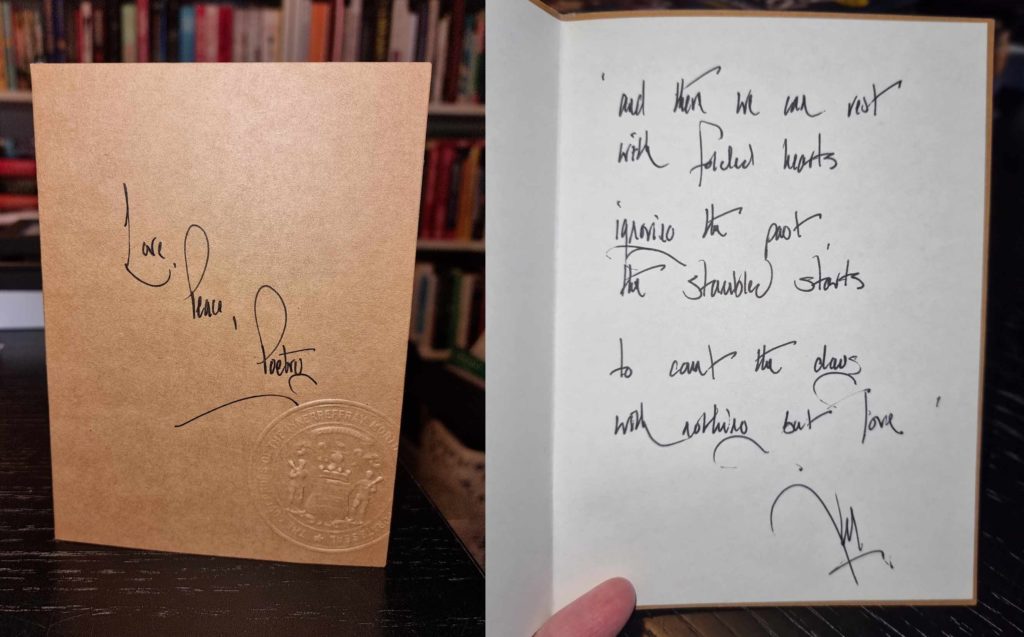 Love,
Peace,
Poetry
'and then we can rest
with folded hearts
ignoring the past,
the stumbled starts
to count the days
with nothing but love'